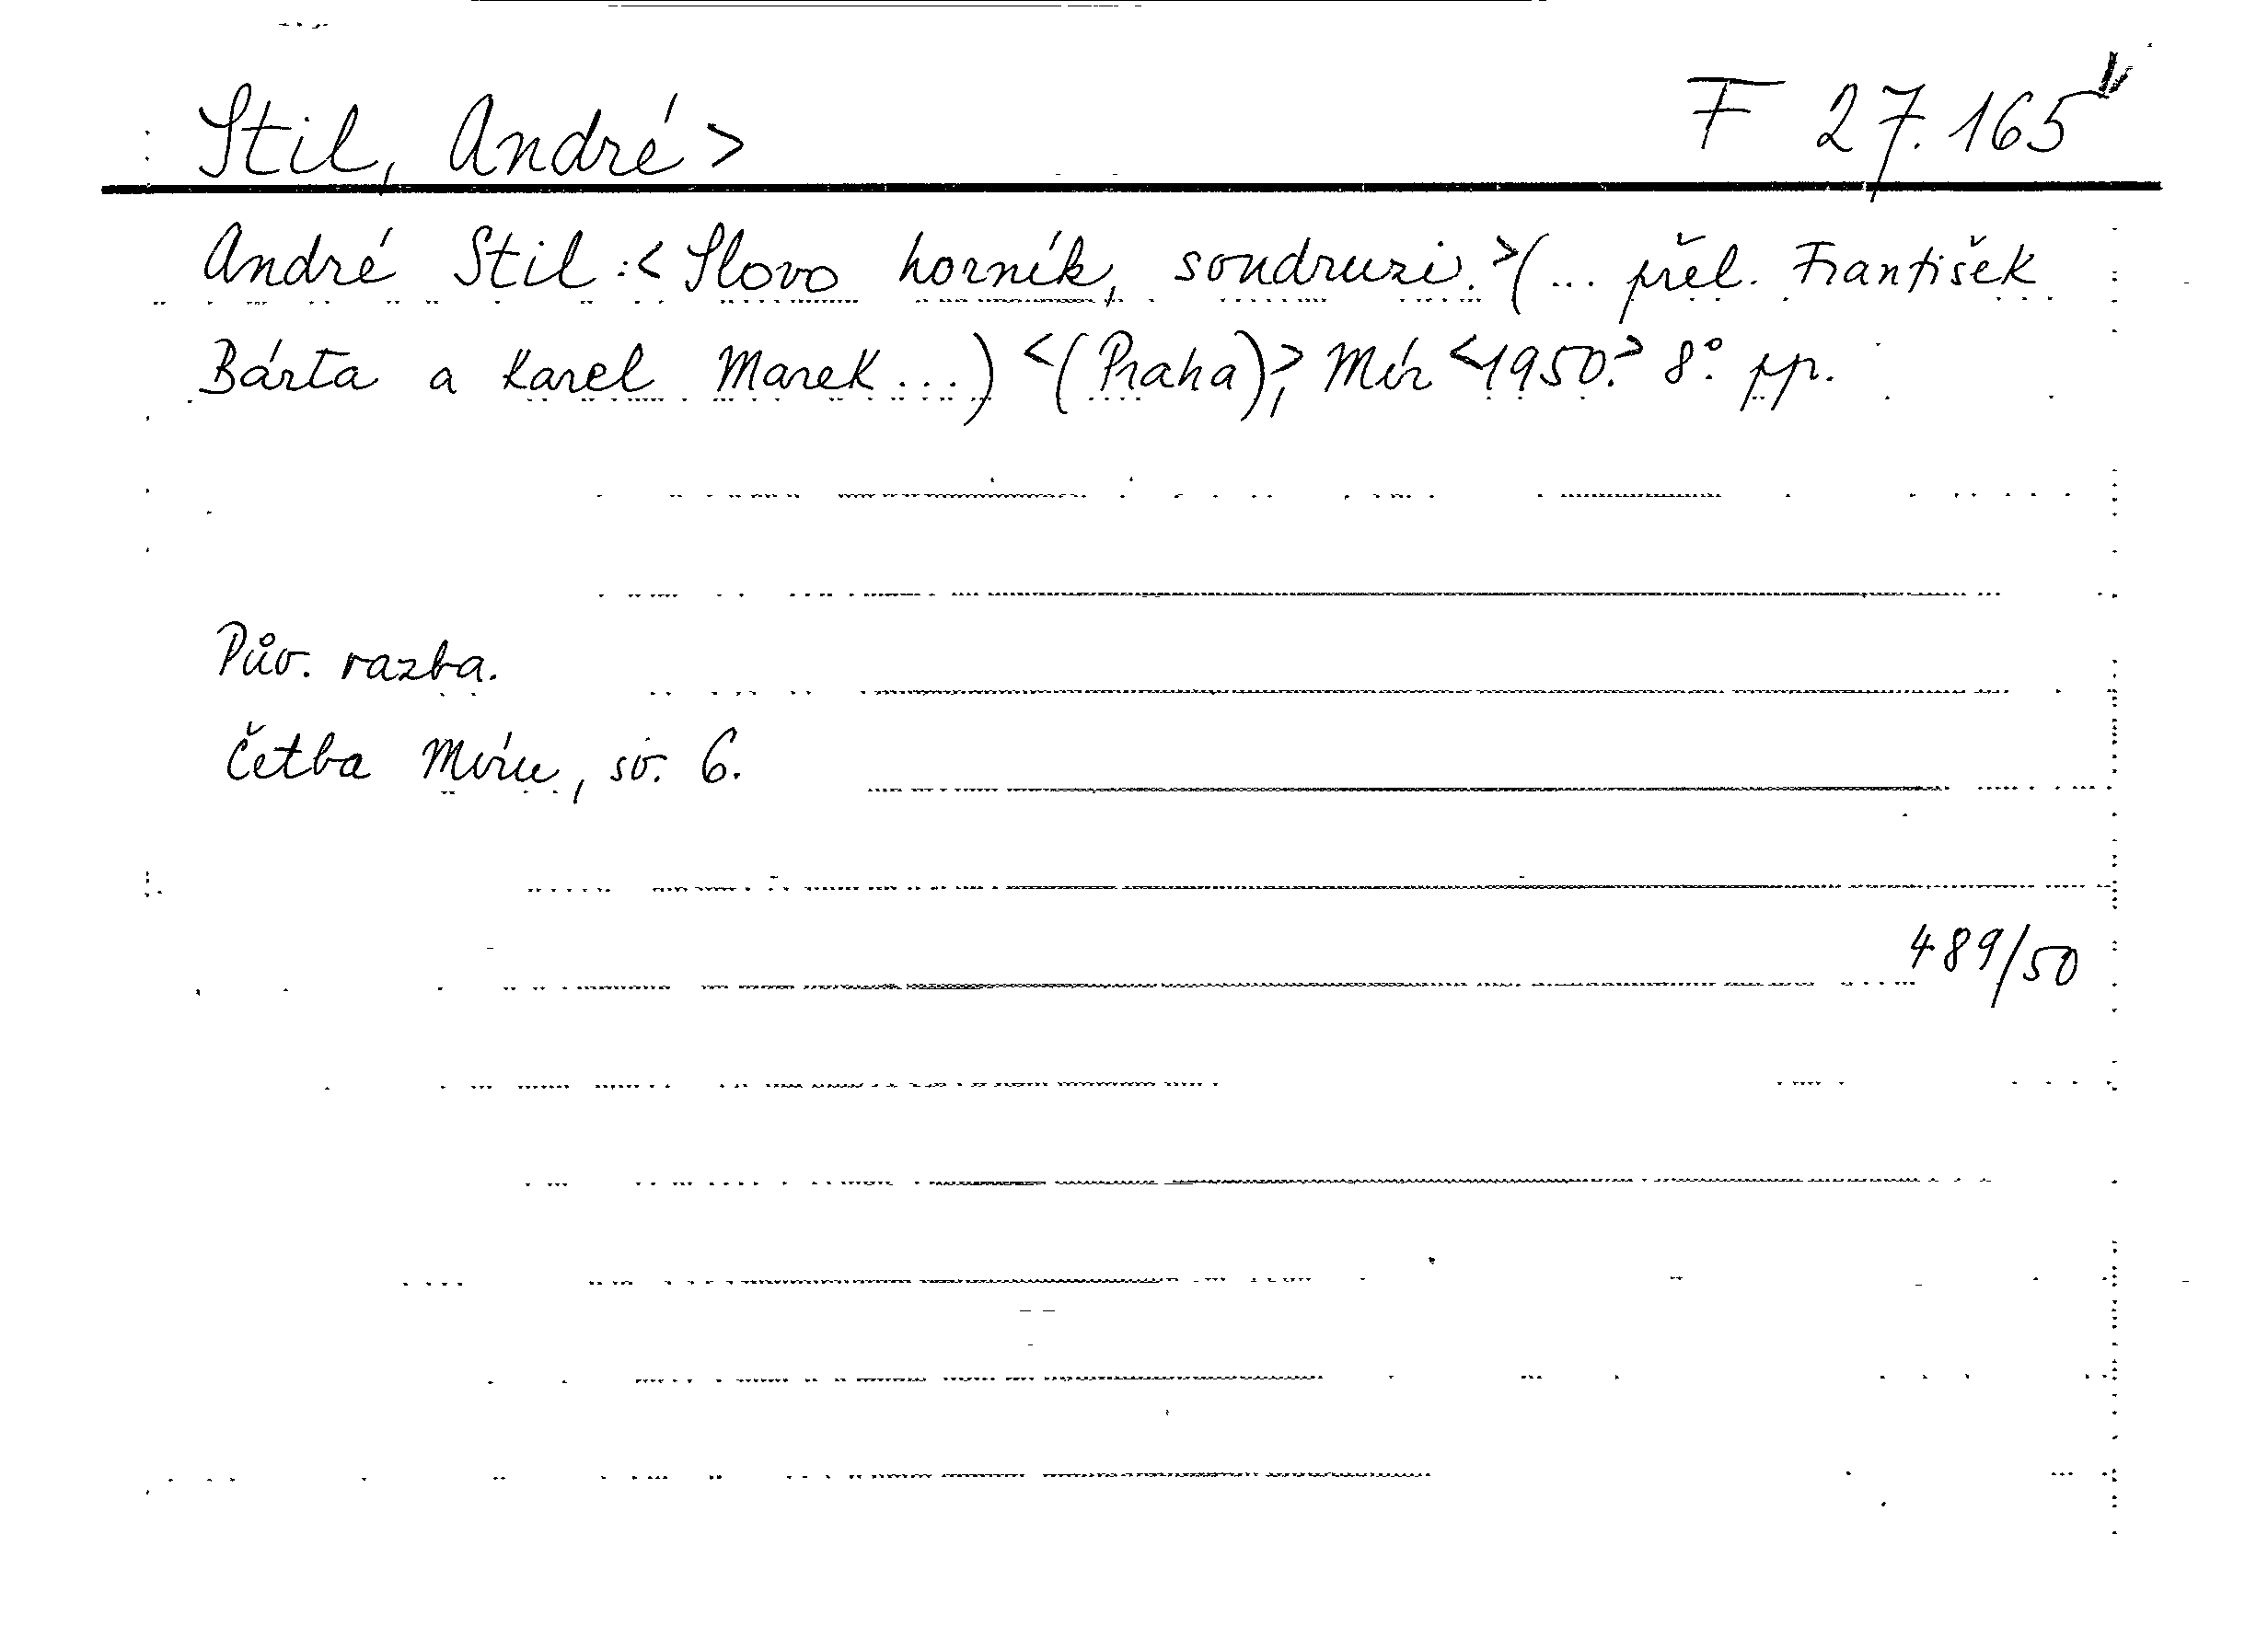 Stil, André > F 27.165
André Stil :< Slovo horník, soudruzi.>(... přel. František
Bárta a Karel Marek...) <(Praha)>, Mír <1950.> 8° pp.
Pův. razba.
Četba Míru, sv. 6.
489/50